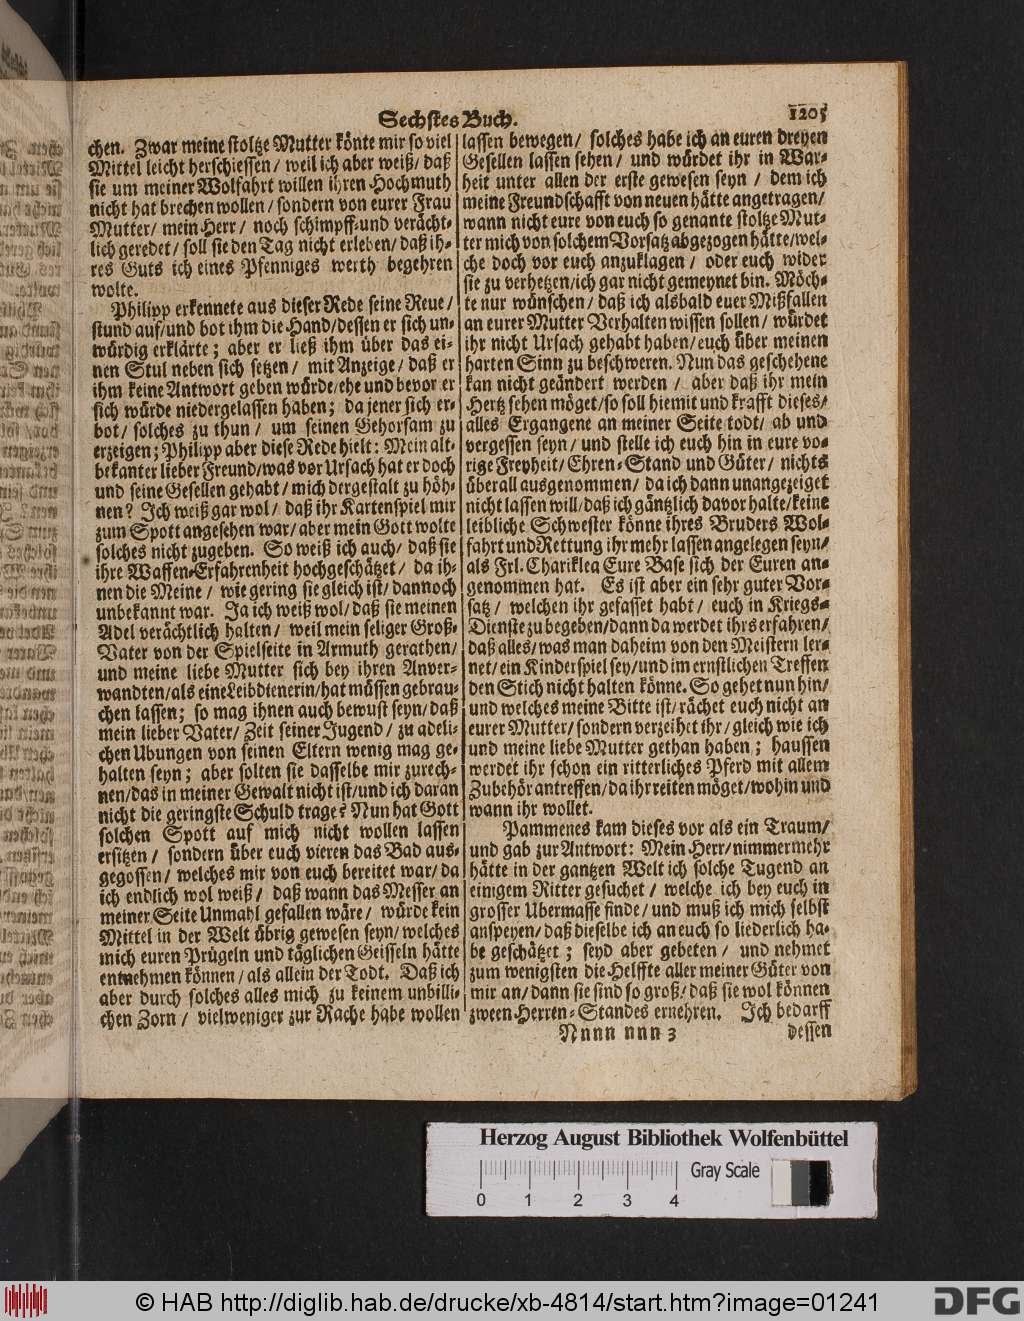 Sechstes Buch.
1205
chen. Zwar meine stoltze Mutter könte mir so viel
Mittel leicht herschiessen / weil ich aber weiß / daß
sie um meiner Wolfahrt willen ihren Hochmuth
nicht hat brechen wollen / sondern von eurer Frau
Mutter / mein Herr / noch schimpff- und verächt-
lich geredet / soll sie den Tag nicht erleben / daß ih-
res Guts ich eines Pfenniges werth begehren
wolte.
Philipp erkennete aus dieser Rede seine Reue /
stund auf / und bot ihm die Hand / dessen er sich un-
würdig erklärte; aber er ließ ihm über das ei-
nen Stul neben sich setzen / mit Anzeige / daß er
ihm keine Antwort geben würde / ehe und bevor er
sich würde niedergelassen haben; da jener sich er-
bot / solches zu thun / um seinen Gehorsam zu
erzeigen; Philipp aber diese Rede hielt: Mein alt-
bekanter lieber Freund / was vor Ursach hat er doch
und seine Gesellen gehabt / mich dergestalt zu höh-
nen? Ich weiß gar wol / daß ihr Kartenspiel mir
zum Spott angesehen war / aber mein Gott wolte
solches nicht zugeben. So weiß ich auch / daß sie
ihre Waffen-Erfahrenheit hochgeschätzet / da ih-
nen die Meine / wie gering sie gleich ist / dannoch
unbekannt war. Ja ich weiß wol / daß sie meinen
Adel verächtlich halten / weil mein seliger Groß-
Vater von der Spielseite in Armuth gerathen /
und meine liebe Mutter sich bey ihren Anver-
wandten / als eine Leibdienerin / hat müssen gebrau-
chen lassen; so mag ihnen auch bewust seyn / daß
mein lieber Vater / Zeit seiner Jugend / zu adeli-
chen Ubungen von seinen Eltern wenig mag ge-
halten seyn; aber solten sie dasselbe mir zurech-
nen / das in meiner Gewalt nicht ist / und ich daran
nicht die geringste Schuld trage? Nun hat Gott
solchen Spott auf mich nicht wollen lassen
ersitzen / sondern über euch vieren das Bad aus-
gegossen / welches mir von euch bereitet war / da
ich endlich wol weiß / daß wann das Messer an
meiner Seite Unmahl gefallen wäre / würde kein
Mittel in der Welt übrig gewesen seyn / welches
mich euren Prügeln und täglichen Geisseln hätte
entnehmen können / als allein der Todt. Daß ich
aber durch solches alles mich zu keinem unbilli-
chen Zorn / vielweniger zur Rache habe wollen
lassen bewegen / solches habe ich an euren dreyen
Gesellen lassen sehen / und würdet ihr in War-
heit unter allen der erste gewesen seyn / dem ich
meine Freundschafft von neuen hätte angetragen /
wann nicht eure von euch so genante stoltze Mut-
ter mich von solchem Vorsatz abgezogen hätte / wel-
che doch vor euch anzuklagen / oder euch wider
sie zu verhetzen / ich gar nicht gemeynet bin. Möch-
te nur wünschen / daß ich alsbald euer Mißfallen
an eurer Mutter Verhalten wissen sollen / würdet
ihr nicht Ursach gehabt haben / euch über meinen
harten Sinn zu beschweren. Nun das geschehene
kan nicht geändert werden / aber daß ihr mein
Hertz sehen möget / so soll hiemit und krafft dieses /
alles Ergangene an meiner Seite todt / ab und
vergessen seyn / und stelle ich euch hin in eure vo-
rige Freyheit / Ehren-Stand und Güter / nichts
überall ausgenommen / da ich dann unangezeiget
nicht lassen will / daß ich gäntzlich davor halte / keine
leibliche Schwester könne ihres Bruders Wol-
fahrt und Rettung ihr mehr lassen angelegen seyn /
als Frl. Chariklea Eure Base sich der Euren an-
genommen hat. Es ist aber ein sehr guter Vor-
satz / welchen ihr gefasset habt / euch in Kriegs-
Dienste zu begeben / dann da werdet ihrs erfahren /
daß alles / was man daheim von den Meistern ler-
net / ein Kinderspiel sey / und im ernstlichen Treffen
den Stich nicht halten könne. So gehet nun hin /
und welches meine Bitte ist / rächet euch nicht an
eurer Mutter / sondern verzeihet ihr / gleich wie ich
und meine liebe Mutter gethan haben; haussen
werdet ihr schon ein ritterliches Pferd mit allem
Zubehör antreffen / da ihr reiten möget / wohin und
wann ihr wollet.
Pammenes kam dieses vor als ein Traum /
und gab zur Antwort: Mein Herr / nimmermehr
hätte in der gantzen Welt ich solche Tugend an
einigem Ritter gesuchet / welche ich bey euch in
grosser Ubermasse finde / und muß ich mich selbst
anspeyen / daß dieselbe ich an euch so liederlich ha-
be geschätzet; seyd aber gebeten / und nehmet
zum wenigsten die Helffte aller meiner Güter von
mir an / dann sie sind so groß / daß sie wol können
zween Herren-Standes ernehren. Ich bedarff
Nnnn nnn 3
dessen
Herzog August Bibliothek Wolfenbüttel
Gray Scale
0 1 2 3 4
© HAB http://diglib.hab.de/drucke/xb-4814/start.htm?image=01241
DFG